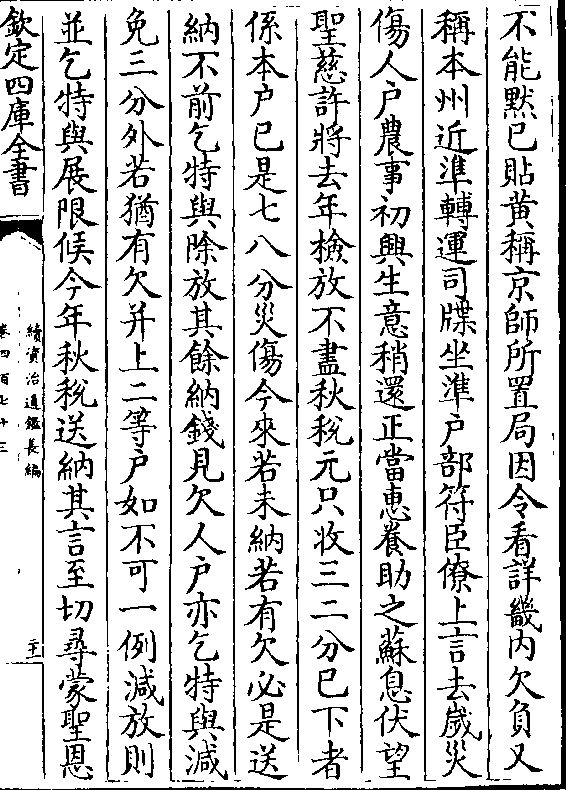 不能黙已貼黄稱京師所置局因令看詳畿内欠負又
稱本州近準轉運司牒坐準戸部符臣僚上言去歲災
傷人戸農事初興生意稍還正當恵養助之蘇息伏望
聖慈許將去年檢放不盡秋稅元只收三二分已下者
係本戸已是七八分災傷今來若未納若有欠必是送
納不前乞特與除放其餘納錢見欠人戸亦乞特與減
免三分外若猶有欠并上二等戸如不可一例減放則
並乞特與展限候今年秋稅送納其言至切尋蒙聖恩
欽定四庫全書
續資治通鑑長編
卷四百七十三